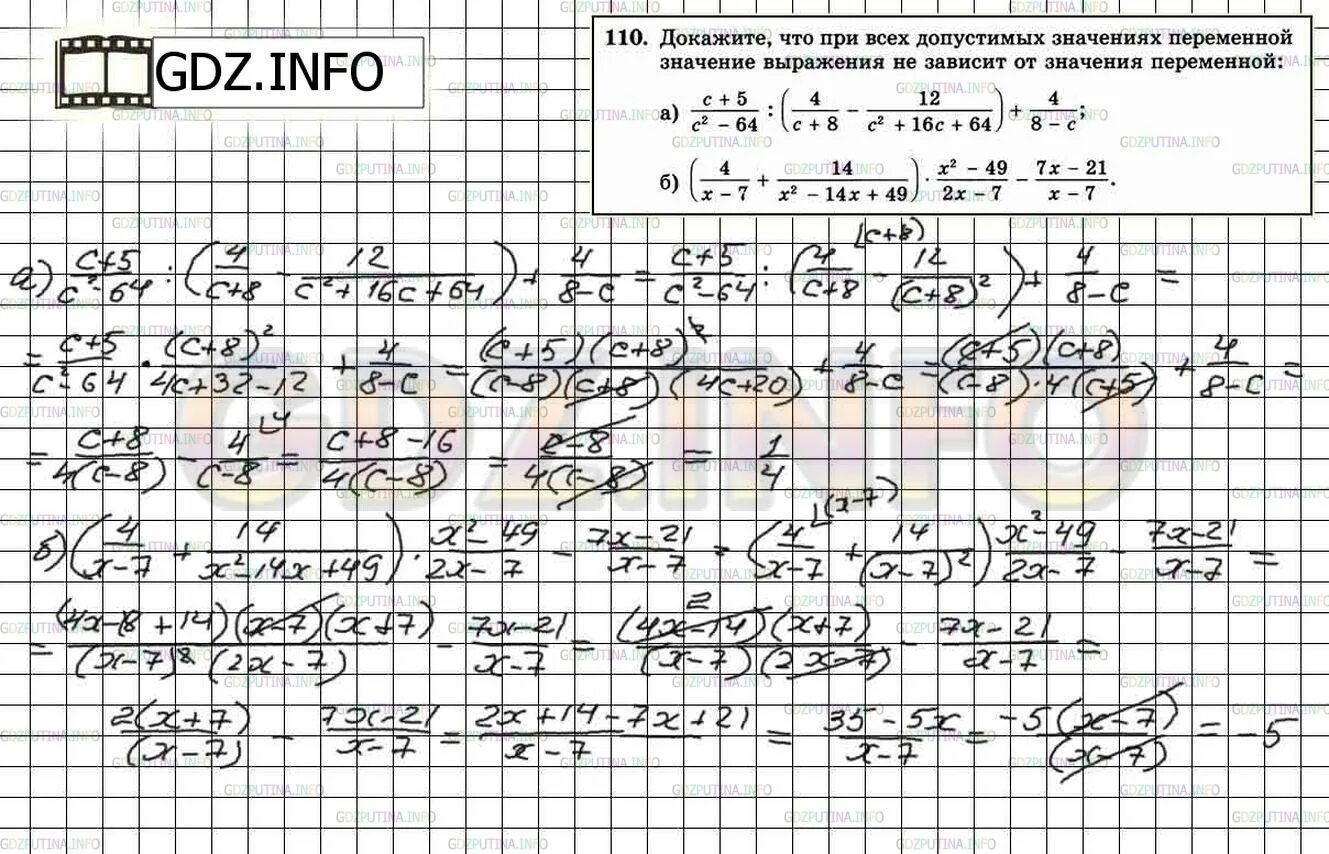 GDZ.INFO
110. Докажите, что при всех допустимых значениях переменной
значение выражения не зависит от значения переменной:
а) (c + 5)/(c² − 64) : (4/(c + 8) − 12/(c² + 16c + 64)) + 4/(8 − c);
б) (4/(x − 7) + 14/(x² − 14x + 49)) · (x² − 49)/(2x − 7) − (7x − 21)/(x − 7).
а) (c+5)/(c²-64) : (4/(c+8) - 12/(c²+16c+64)) + 4/(8-c) = (c+5)/(c²-64) : (4/(c+8) - 12/(c+8)²) + 4/(8-c) =
= (c+5)/(c²-64) · (c+8)²/(4c+32-12) + 4/(8-c) = (c+5)(c+8)²/((c-8)(c+8)(4c+20)) + 4/(8-c) = (c+5)(c+8)/((c-8)·4(c+5)) + 4/(8-c) =
= (c+8)/(4(c-8)) - 4/(c-8) = (c+8-16)/(4(c-8)) = (c-8)/(4(c-8)) = 1/4
б) (4/(x-7) + 14/(x²-14x+49)) · (x²-49)/(2x-7) - (7x-21)/(x-7) = (4/(x-7) + 14/(x-7)²) (x²-49)/(2x-7) - (7x-21)/(x-7) =
= (4x-18+14)(x-7)(x+7)/((x-7)²(2x-7)) - (7x-21)/(x-7) = (4x-14)(x+7)/((x-7)(2x-7)) - (7x-21)/(x-7) =
2(x+7)/(x-7) - (7x-21)/(x-7) = (2x+14-7x+21)/(x-7) = (35-5x)/(x-7) = -5(x-7)/(x-7) = -5
GDZ.INFO
GDZPUTINA.INFO